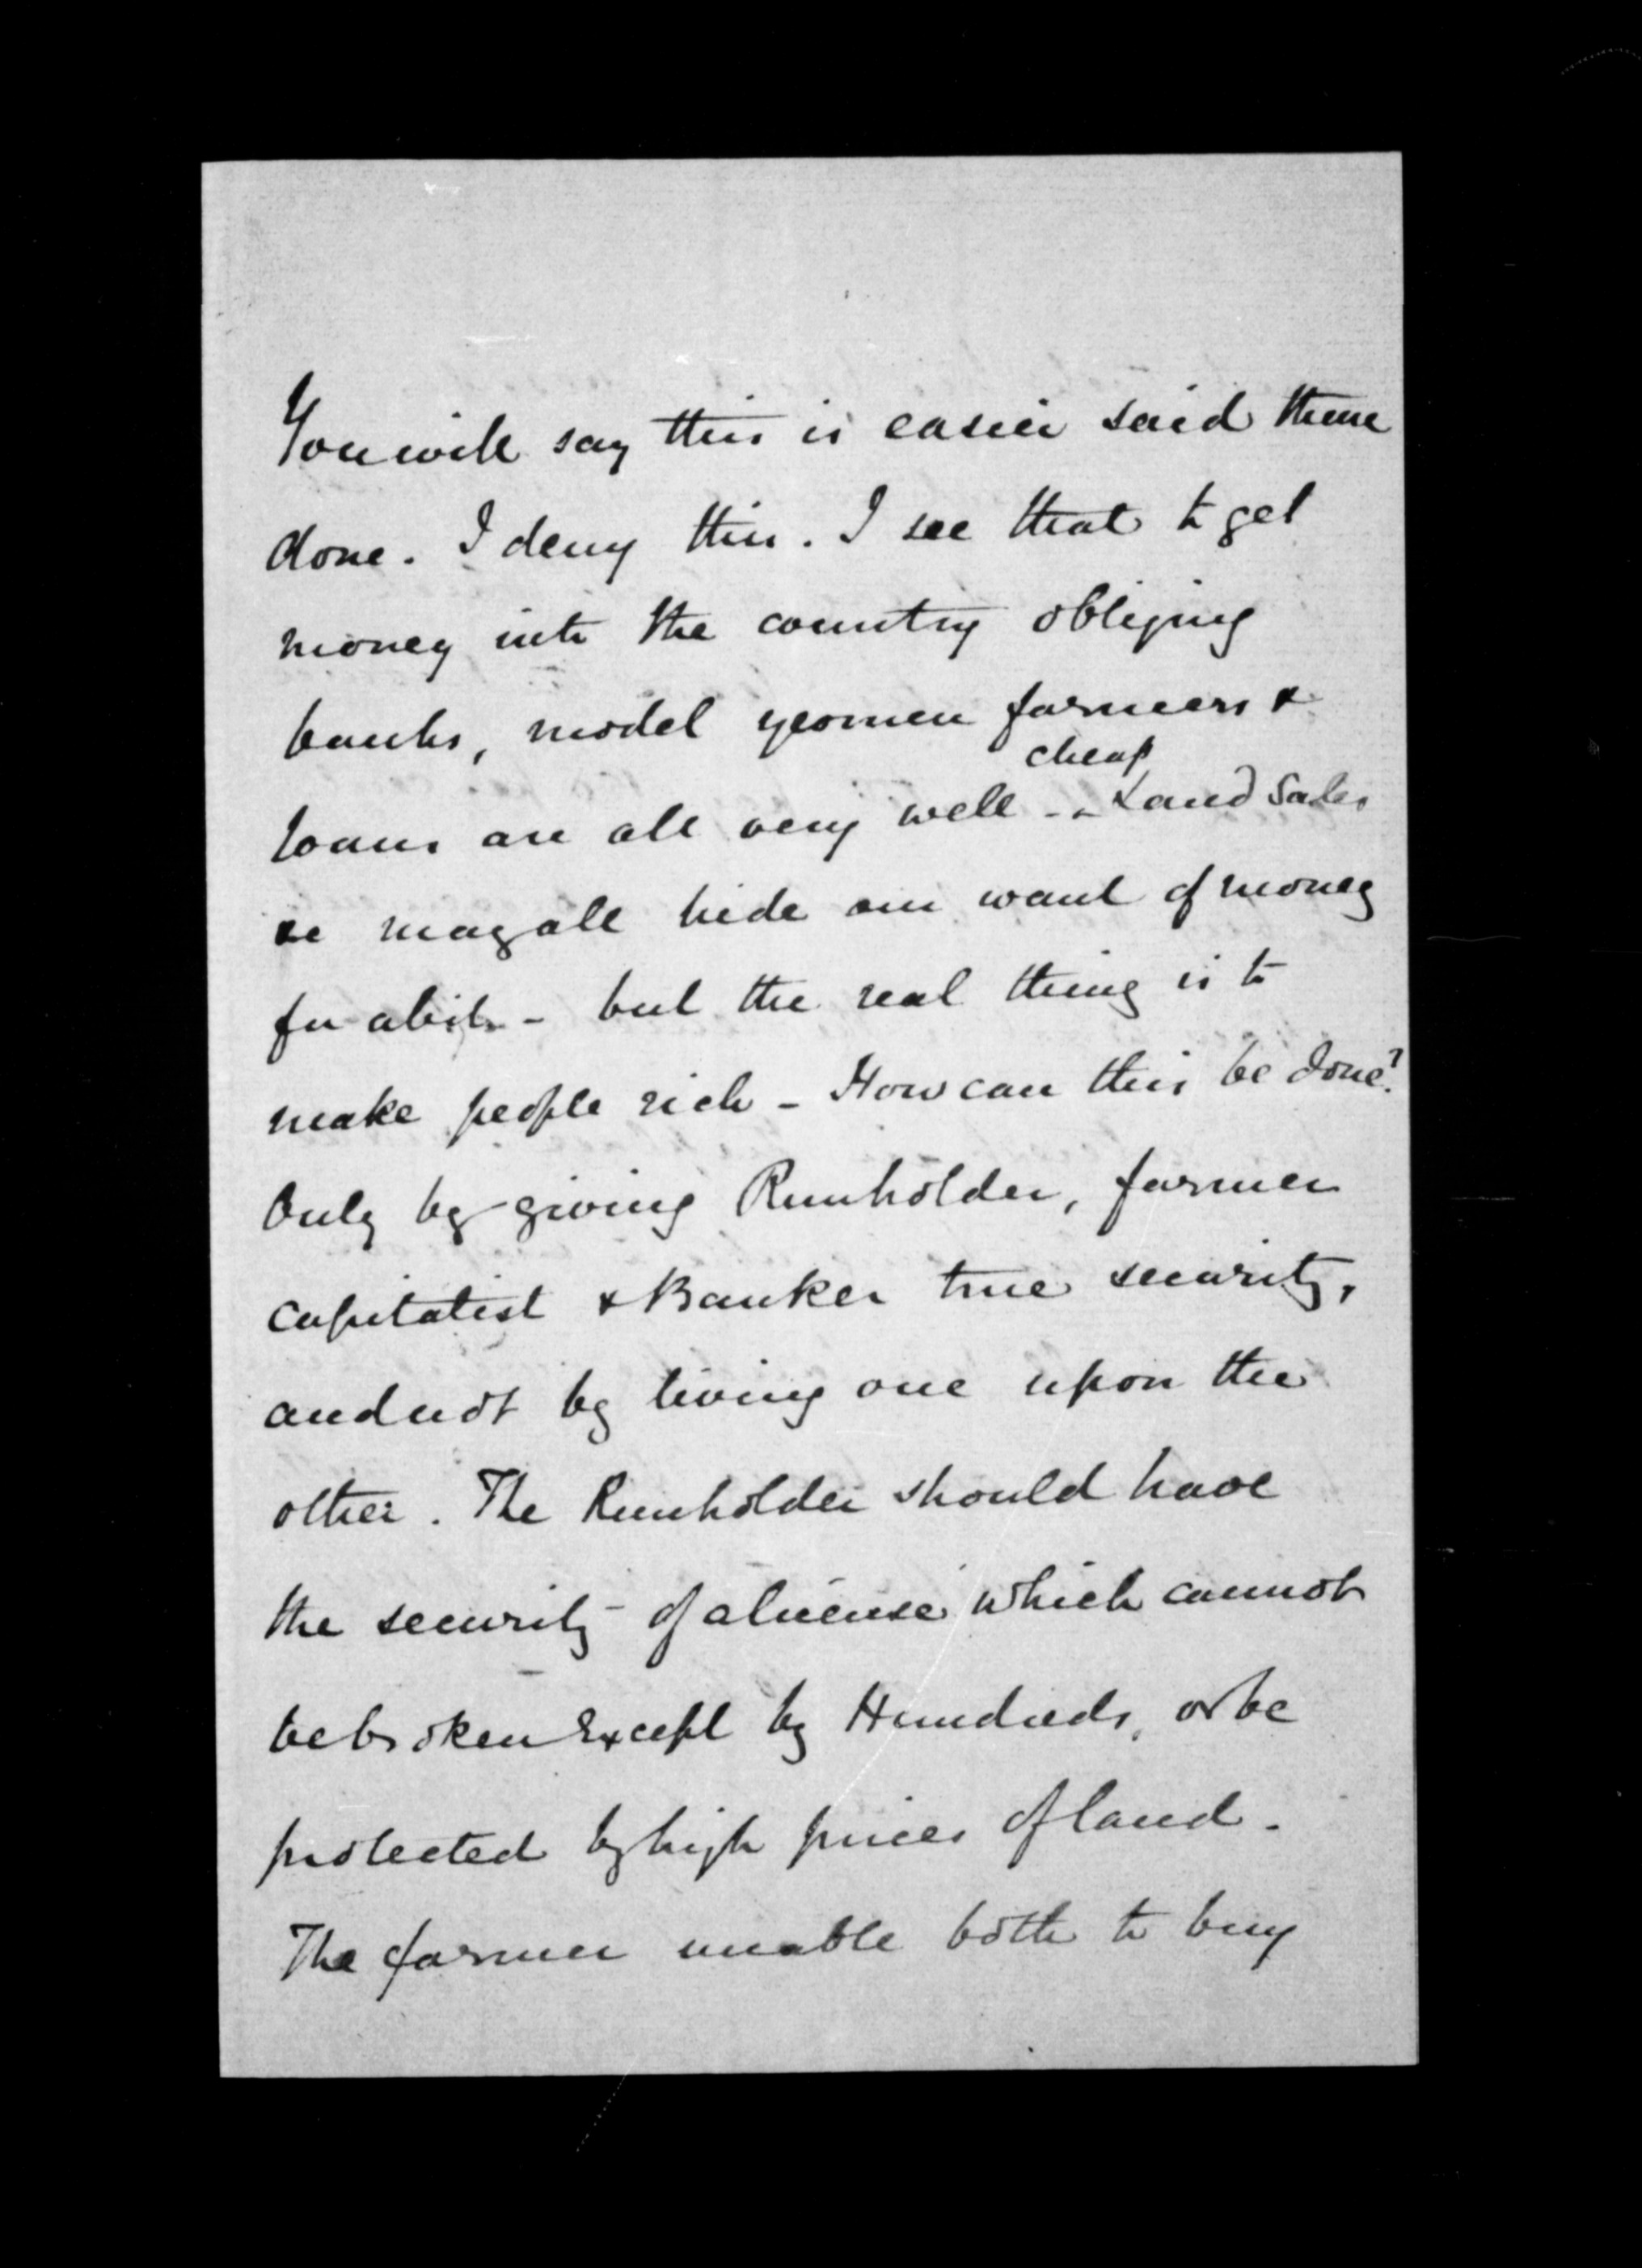 You will say this is easier said than
done. I deny this. I see that to get
money into the country obliging
banks, model yeomen farmers &
cheap
loans are all very well - Land Sales
may all hide our want of money
for a bit - but the real thing is to
make people rich - How can this be done?
Only by giving Runholder, farmer
capitalist & Banker true security,
and not by living one upon the
other. The Runholder should have
the security of a license which cannot
be broken except by Hundreds, or be
protected by high prices of land.
The farmer unable both to buy